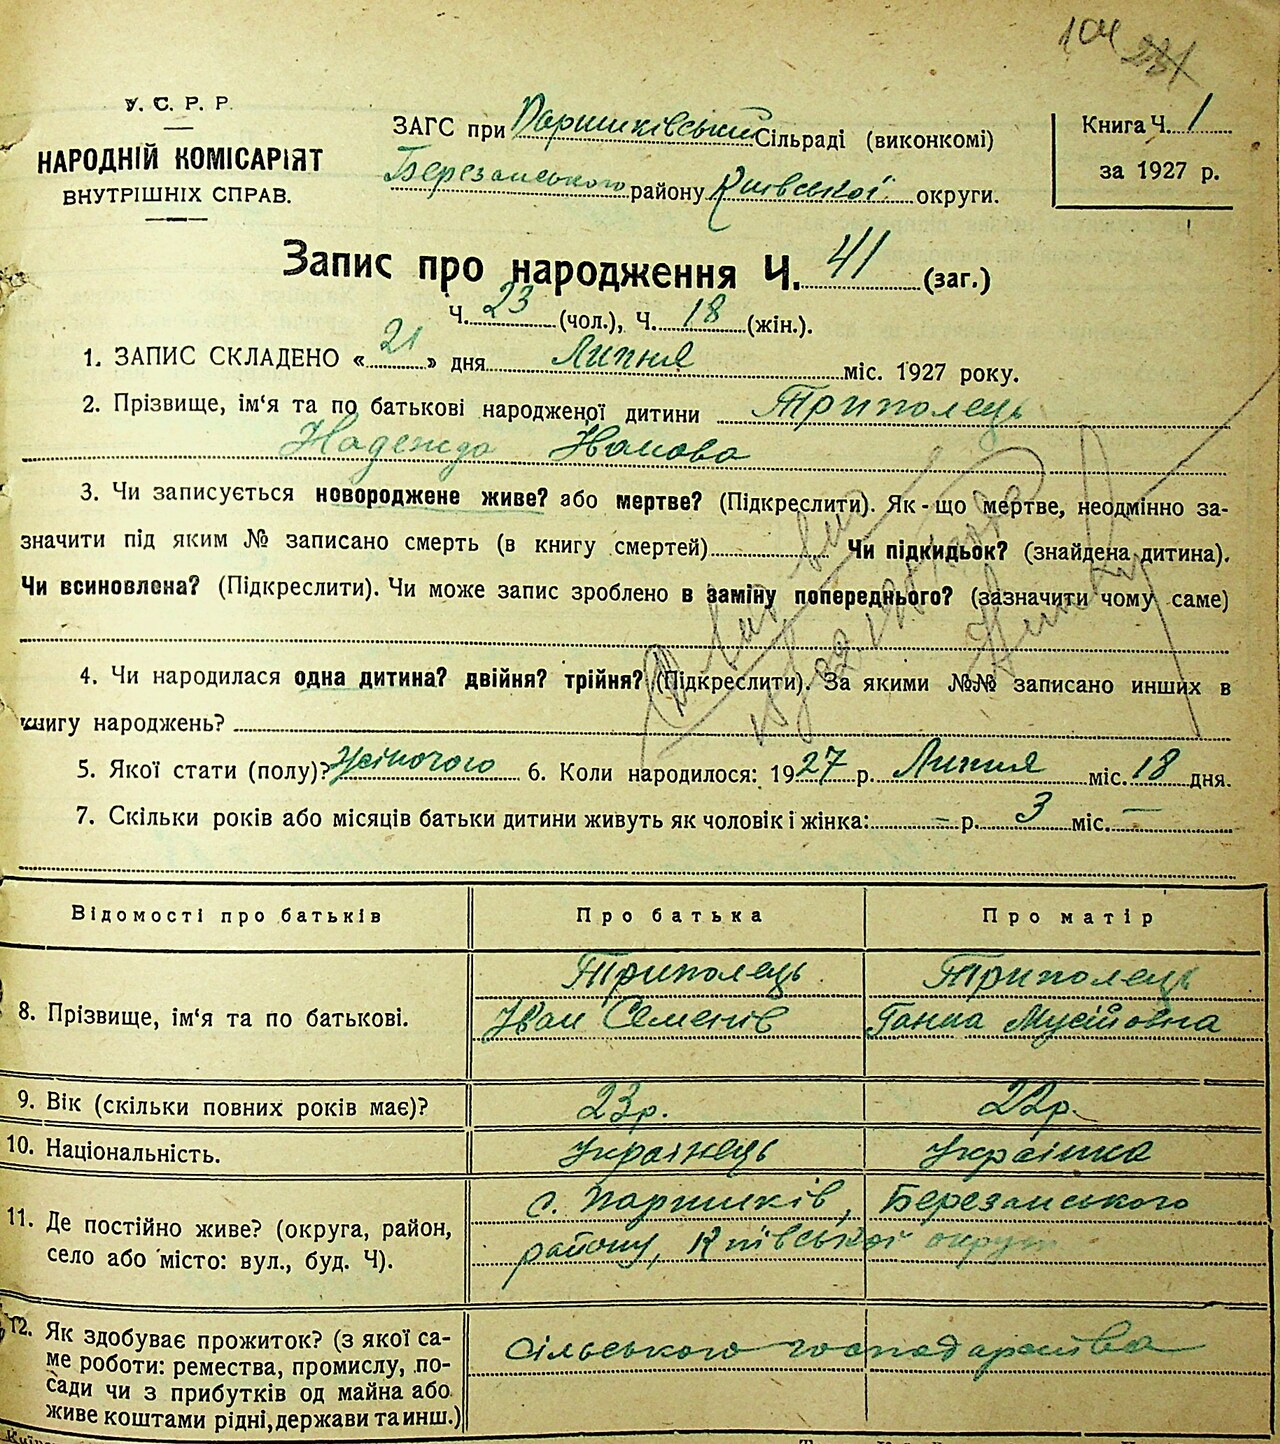 104 231
У. С. Р. Р.
НАРОДНІЙ КОМІСАРІЯТ
ВНУТРІШНІХ СПРАВ.
ЗАГС при Паришківський Сільраді (виконкомі)
Березанського району Київської округи.
Книга Ч. 1
за 1927 р.
Запис про народження Ч. 41 (заг.)
Ч. 23 (чол.), Ч. 18 (жін.).
1. ЗАПИС СКЛАДЕНО « 21 » дня Липня міс. 1927 року.
2. Прізвище, ім'я та по батькові народженої дитини Триполець
Надежда Іванова
3. Чи записується новороджене живе? або мертве? (Підкреслити). Як-що мертве, неодмінно за-
значити під яким № записано смерть (в книгу смертей) Чи підкидьок? (знайдена дитина).
Чи всиновлена? (Підкреслити). Чи може запис зроблено в заміну попереднього? (зазначити чому саме)
4. Чи народилася одна дитина? двійня? трійня? (Підкреслити). За якими №№ записано инших в
книгу народжень?
5. Якої стати (полу)? Жіночого 6. Коли народилося: 1927 р. Липня міс. 18 дня.
7. Скільки років або місяців батьки дитини живуть як чоловік і жінка: – р. 3 міс. –
Відомості про батьків Про батька Про матір
8. Прізвище, ім'я та по батькові. Триполець Триполець
Іван Семенів Ганна Мусійовна
9. Вік (скільки повних років має)? 23р. 22р.
10. Національність. Українець Українка
11. Де постійно живе? (округа, район, с. Паришків, Березанського
село або місто: вул., буд. Ч). району, Київської округи
12. Як здобуває прожиток? (з якої са- сільського господарства
ме роботи: ремества, промислу, по-
сади чи з прибутків од майна або
живе коштами рідні, держави та инш.)